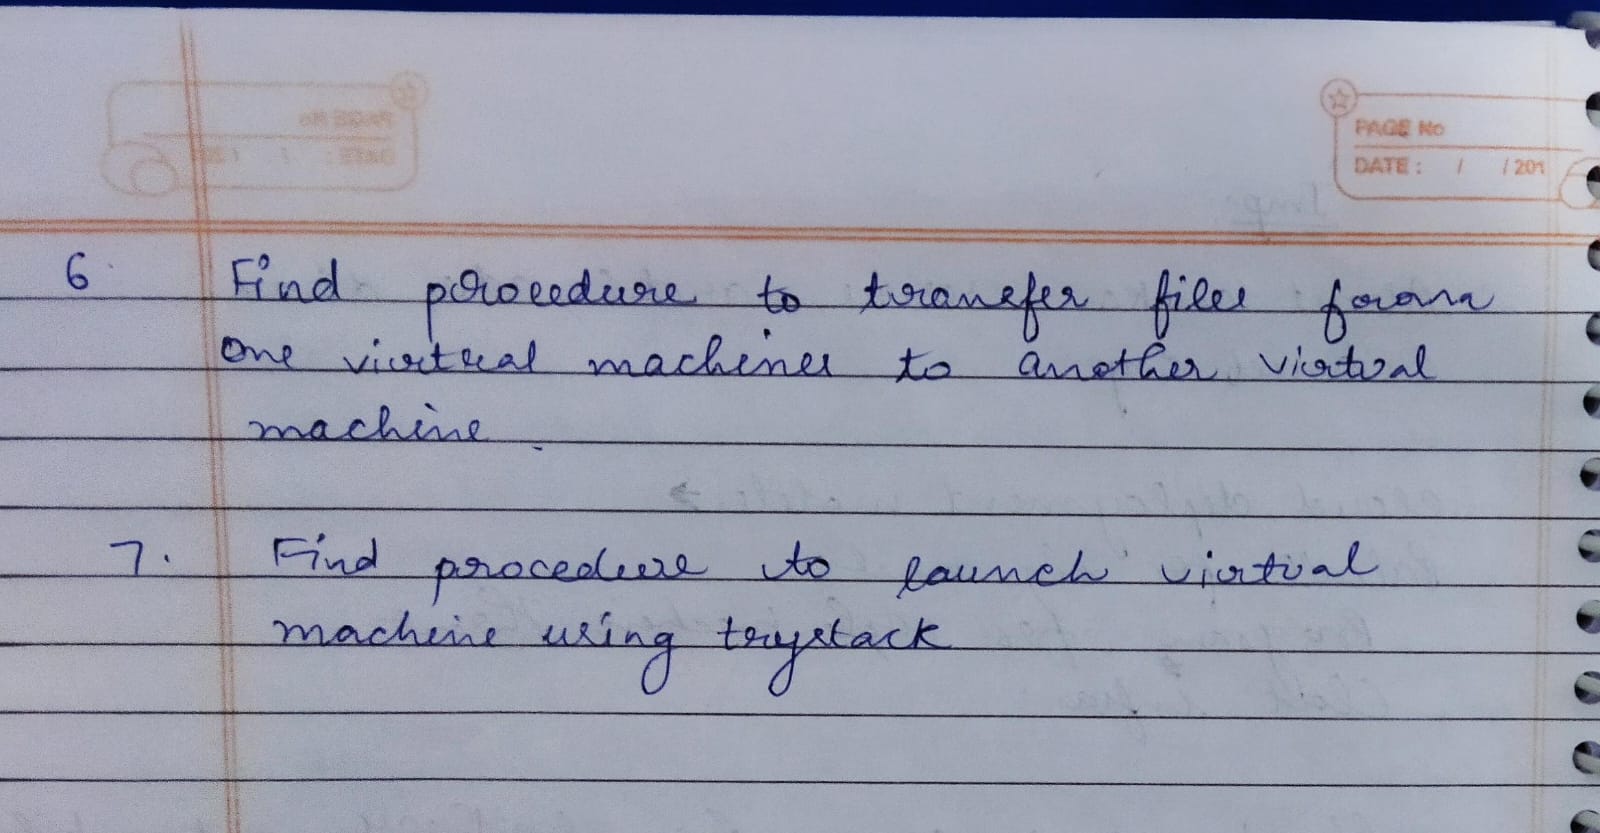 PAGE No
DATE : / / 201
6. Find procedure to transfer files from
one virtual machines to another virtual
machine.
7. Find procedure to launch virtual
machine using trystack